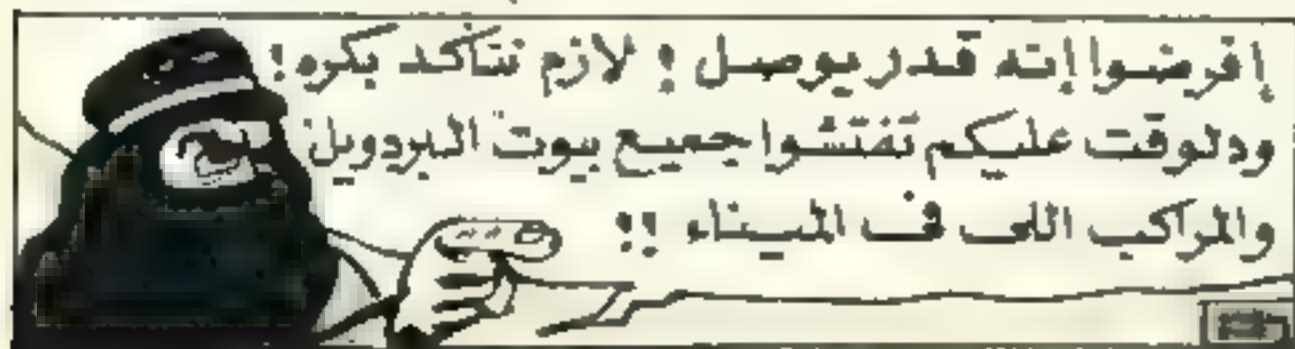 إفرضوا إنه قدر يوصل ! لازم نتأكد بكره !
ودلوقت عليكم تفتشوا جميع بيوت البردويل
والمراكب اللى فى الميناء !!